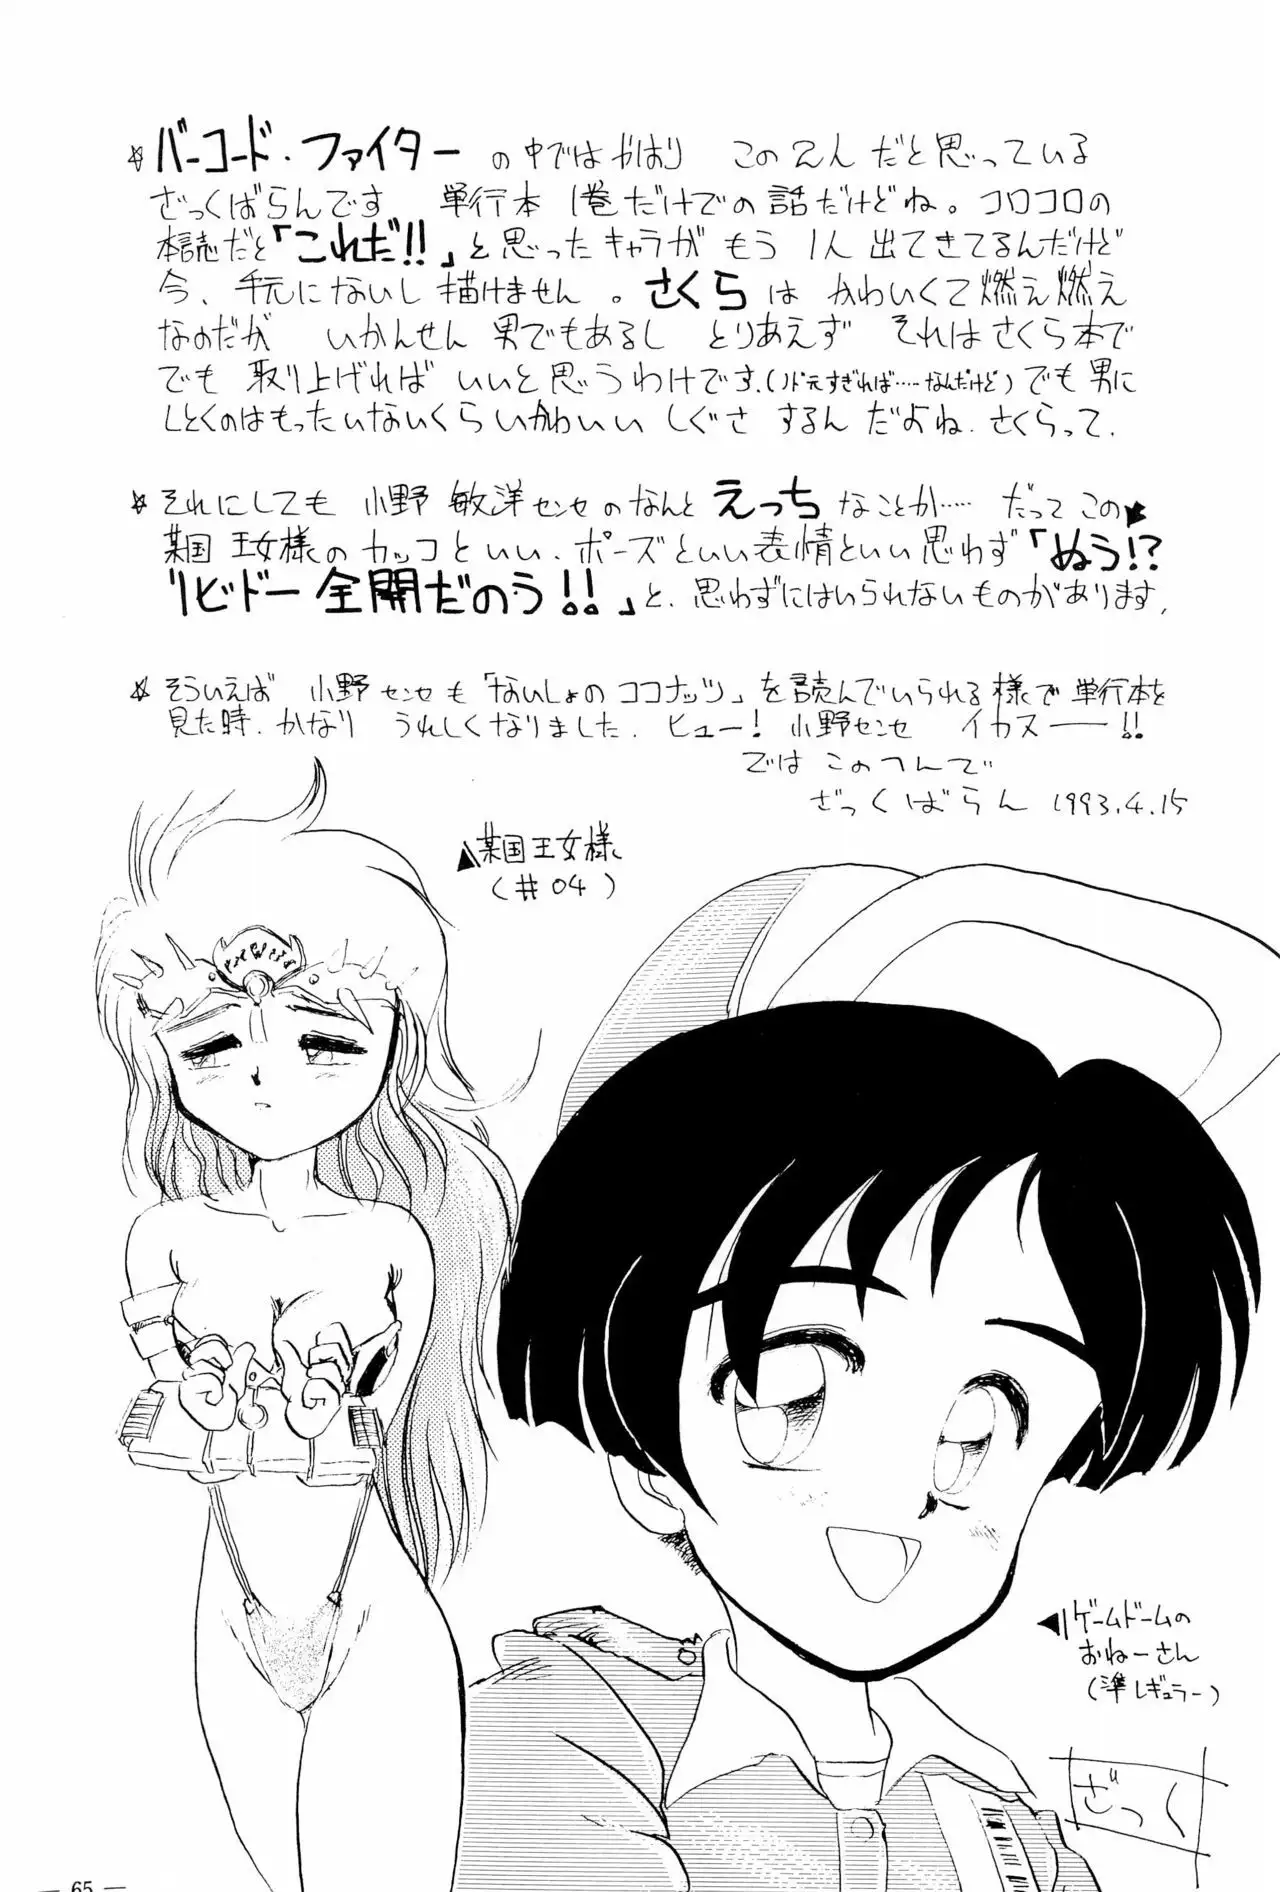 ☆ バーコード・ファイター の中ではやはり この2人だと思っている
ざっくばらんです 単行本1巻だけでの話だけどね。コロコロの
本誌だと「これだ!!」と思ったキャラがもう1人出てきてるんだけど
今、手元にないし描けません。さくらはかわいくて燃え燃え
なのだが いかんせん男でもあるし とりあえず それはさくら本で
でも取り上げればいいと思うわけです.(ノド元すぎれば……なんだけど)でも男に
しとくのはもったいないくらいかわいいしぐさするんだよね.さくらって.
☆ それにしても 小野敏洋センセのなんとえっちなことか…… だってこの
某国王女様のカッコといい、ポーズといい表情といい思わず「ぬう!?
リビドー全開だのう!!」と、思わずにはいられないものがあります.
☆ そういえば 小野センセも「ないしょのココナッツ」を読んでいられる様で単行本を
見た時.かなり うれしくなりました.ヒュー!小野センセ イカスー!!
では このへんで
ざっくばらん 1993.4.15
某国王女様
(#04)
03
ゲームドームの
おねーさん
(準レギュラー)
ざっく
— 65 —